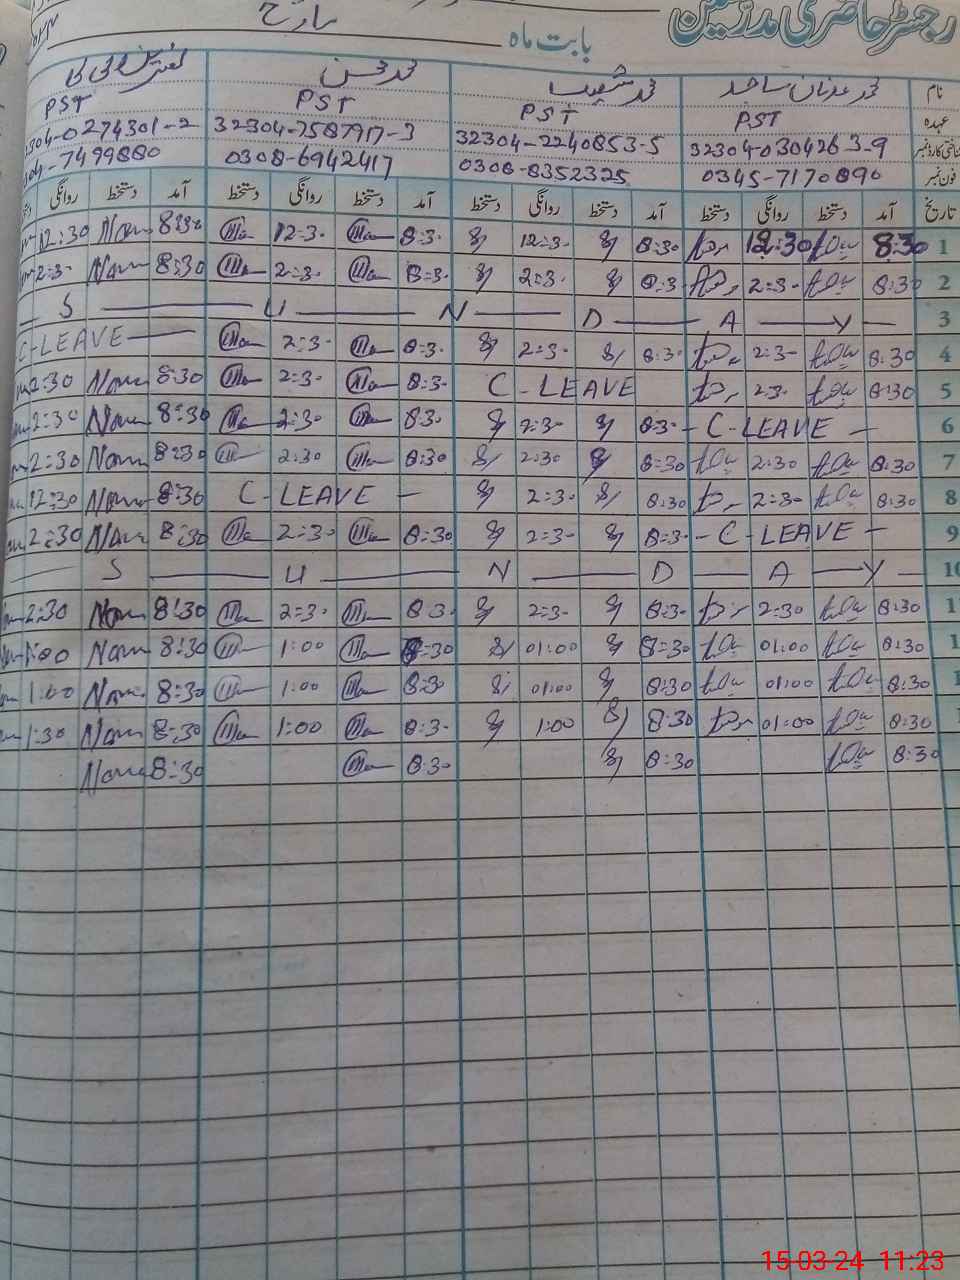 رجسٹر حاضری مدرسین
بابت ماہ مارچ
نام محمد عدنان ساجد محمد شعیب محمد محسن
عہدہ PST PST PST PST
شناختی کارڈ نمبر 32304-0304263-9 32304-2240853-5 32304-7587917-3 2304-0274301-2
فون نمبر 0345-7170890 0308-8352325 0308-6942417 7499880
تاریخ آمد دستخط روانگی دستخط آمد دستخط روانگی دستخط آمد دستخط روانگی دستخط آمد دستخط روانگی
1 8:30 12:30 8:30 12:3- 8:3- 12:3- 8:30 12:30
2 8:30 2:3- 8:3 2:3- 8:3- 2:3- 8:30 2:3-
3 S U N D A Y
4 8:30 2:3- 8:3- 2:3- 8:3- 2:3- C-LEAVE
5 8:30 2:3- C-LEAVE 8:3- 2:3- 8:30 2:30
6 C-LEAVE 8:3- 2:3- 8:30 2:30 8:30 2:30
7 8:30 2:30 8:30 2:30 8:30 2:30 8:30 2:30
8 8:30 2:3- 8:30 2:3- C-LEAVE 8:30 12:30
9 C-LEAVE 8:3- 2:3- 8:30 2:3- 8:30 2:30
10 S U N D A Y
1 8:30 2:30 8:3- 2:3- 8:3- 2:3- 8:30 2:30
1 8:30 01:00 8:30 01:00 8:30 1:00 8:30 1:00
1 8:30 01:00 8:30 01:00 8:30 1:00 8:30 1:00
1 8:30 01:00 8:30 1:00 8:3- 1:00 8:30 1:30
8:30 8:30 8:30 8:30
15-03-24 11:23